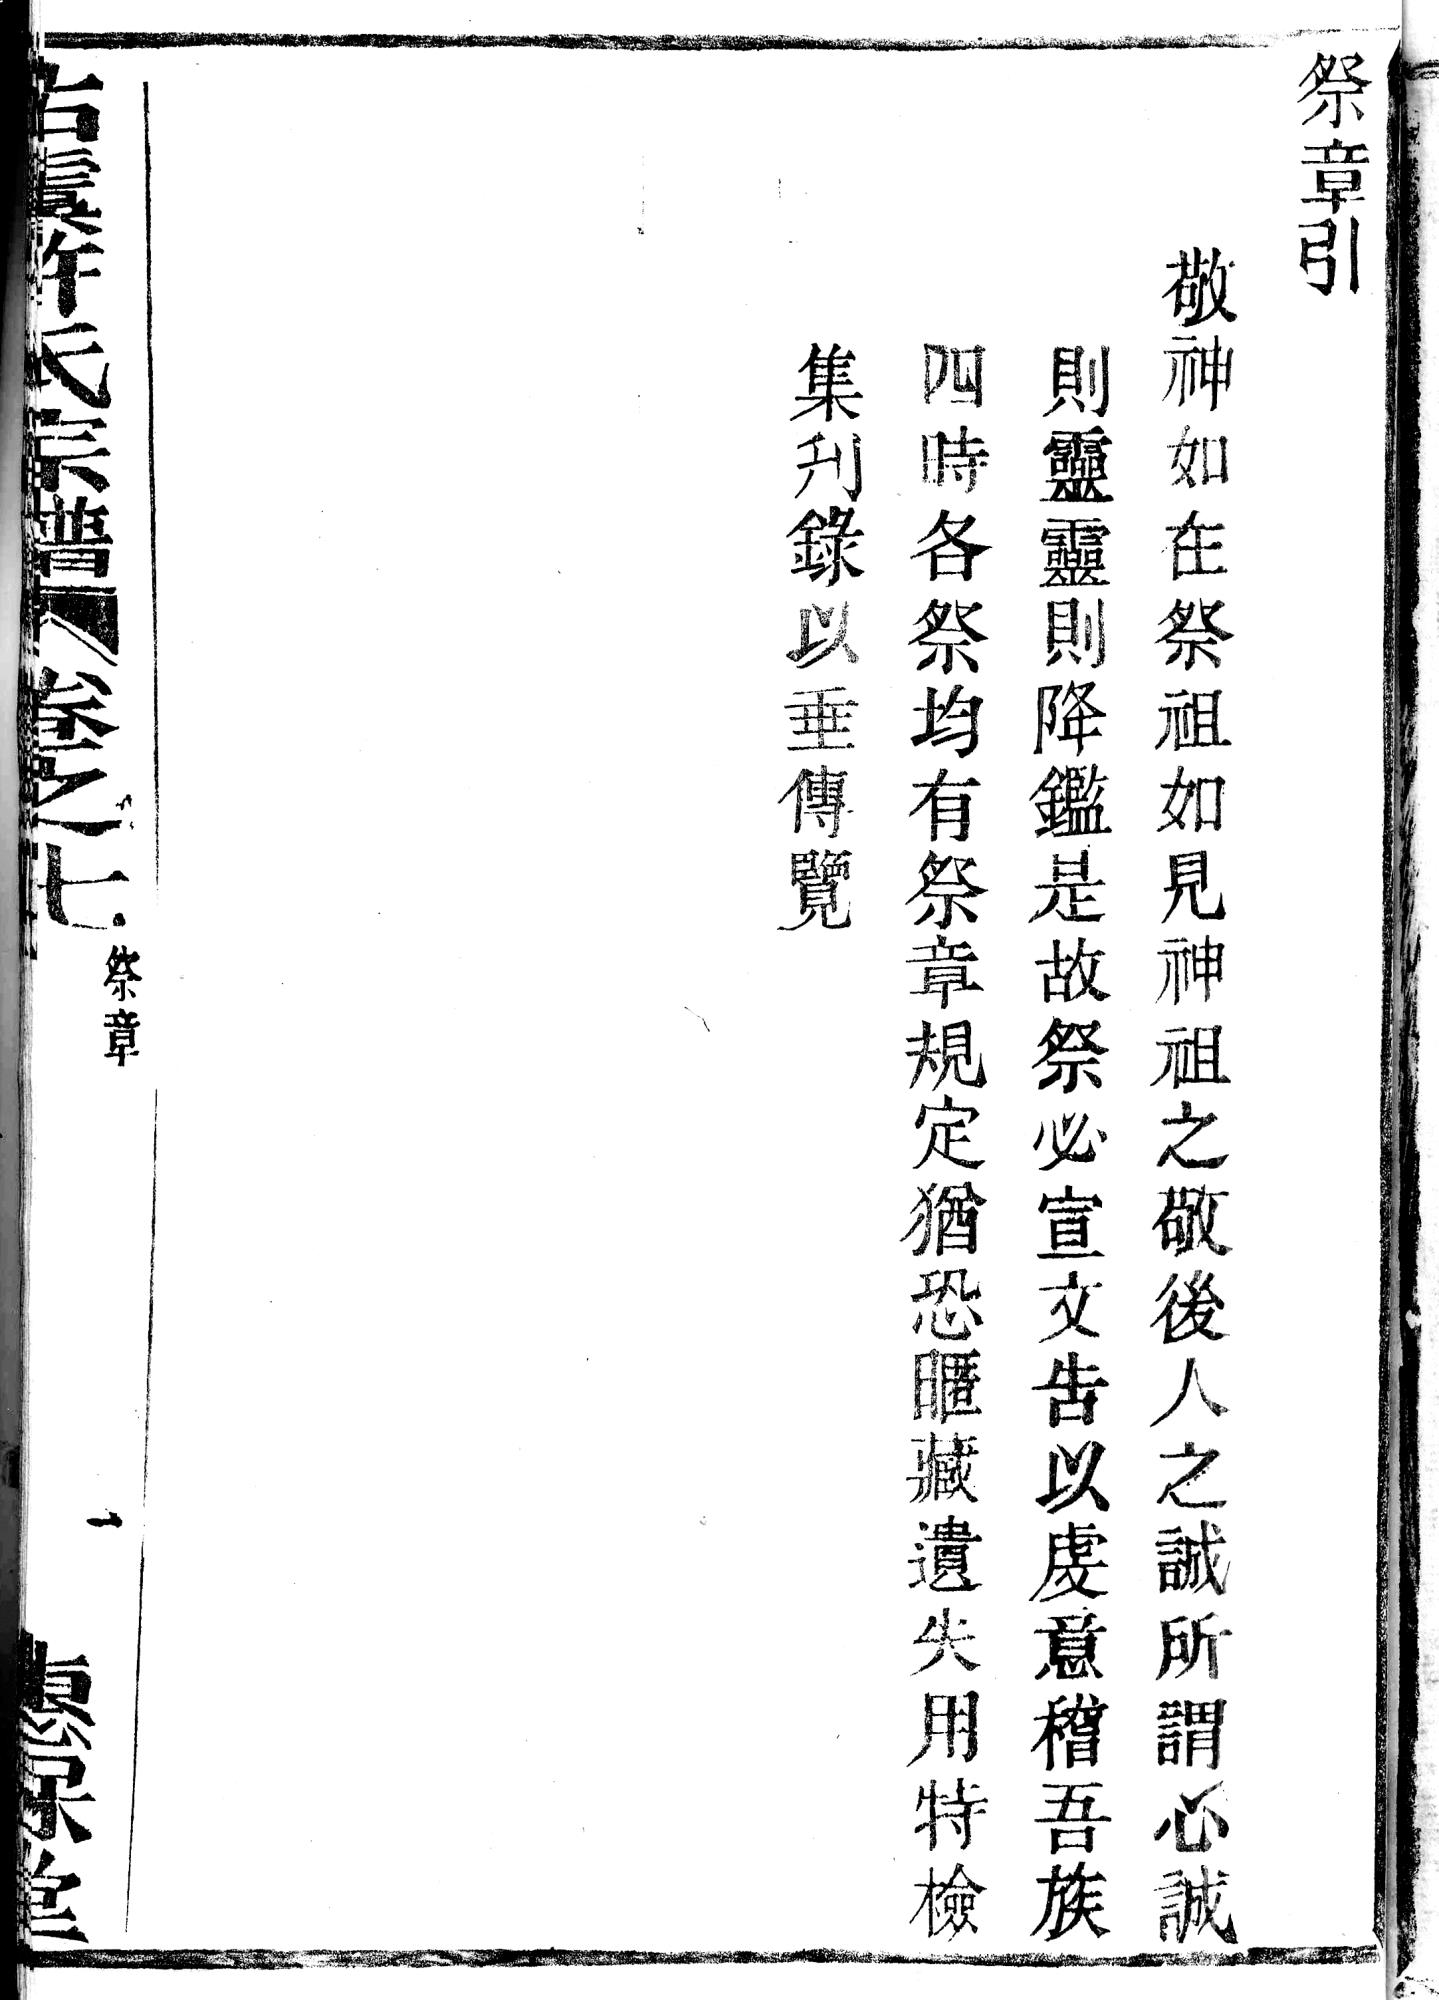 祭章引
敬神如在祭祖如見神祖之敬後人之誠所謂心誠
則靈靈則降鑑是故祭必宣文告以虔意稽吾族
四時各祭均有祭章規定猶恐匿藏遺失用特檢
集刋錄以垂傳覽
古虞許氏宗譜 卷之七
祭章
一
堂